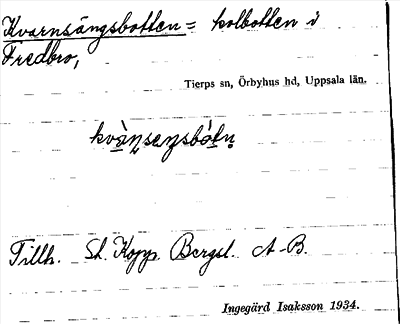 Kvarnsängsbotten = kolbotten i
Fredbro,
Tierps sn, Örbyhus hd, Uppsala län.
Tillh. St. Kopp. Bergsl. A-B.
Ingegärd Isaksson 1934.